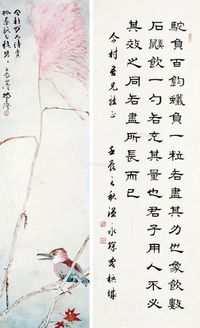 駝負百鈞蟻負一粒各盡其力也象飲數
石鼷飲一勺各充其量也君子用人不必
其效之同各盡所長而已
今村吾兄雅正
壬辰之秋溫永琛